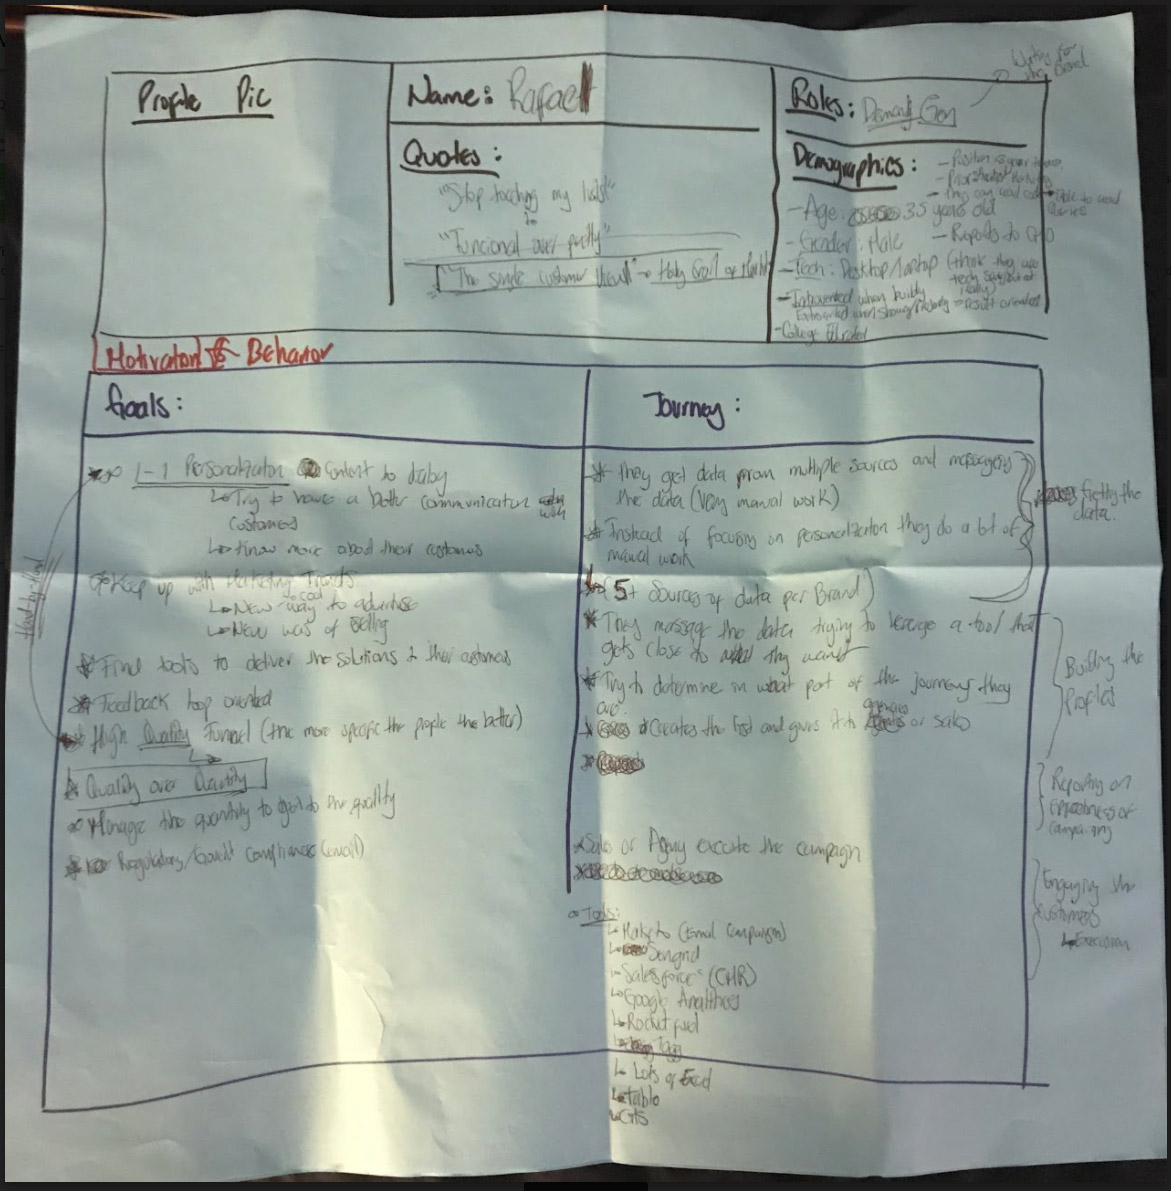 Profile Pic
Name: Rafael
Quotes:
"Stop touching my lists"
"Funcional over pretty"
"The single customer → Holy Grail of
Working for
Brand
Roles: Demand Gen
Demographics:
- Age: 35 years old
- Gender: Male
- Reports to CMO
- Tech: Desktop/laptop (think they are
tech
really)
- Introverted when
Extroverted when → result oriented
- College
Motivation & Behavior
Goals:
1-1 Personalization content to
Try to have a better communication
customers
Know more about their customers
Keep up with Marketing Trends
cool
New way to advertise
New was of selling
Find tools to deliver the solutions 2 their customers
Feedback loop oriented
High Quality Funnel (the more specific the people the better)
Quality over Quantity
Manage the quantity to get to the quality
Regulatory/ compliance (email)
Hand-by-Hand
Journey:
They get data from multiple sources and
the data (very manual work)
Instead of focusing on personalization they do a lot of
manual work
(5+ Sources of data per Brand)
Getting the
data.
They massage the data trying to leverage a tool that
gets close to what they want
Try to determine in what part of the journey they
are..
Creates the list and gives it to agencies or sales
Building the
Profiles
Reporting on
effectiveness of
campaing
Sales or Agency execute the campaign
Engaging the
customers
Execution
Tools:
Marketo (Email Campaigns)
Sengrid
Salesforce (CMR)
Google Analitics
Rocket fuel
Lots of Excel
Tablo